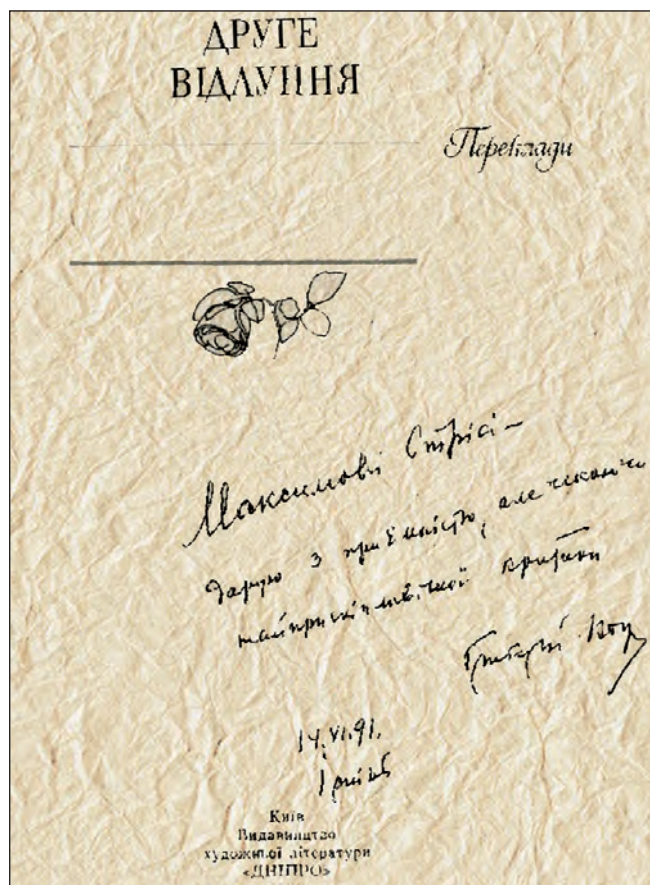 ДРУГЕ
ВІДЛУННЯ
Переклади
Максимові Стрісі –
дарую з приємністю, але чекаючи
найприскіпливішої критики
Григорій Коч
14.VI.91.
Ірпінь
Київ
Видавництво
художньої літератури
«ДНІПРО»